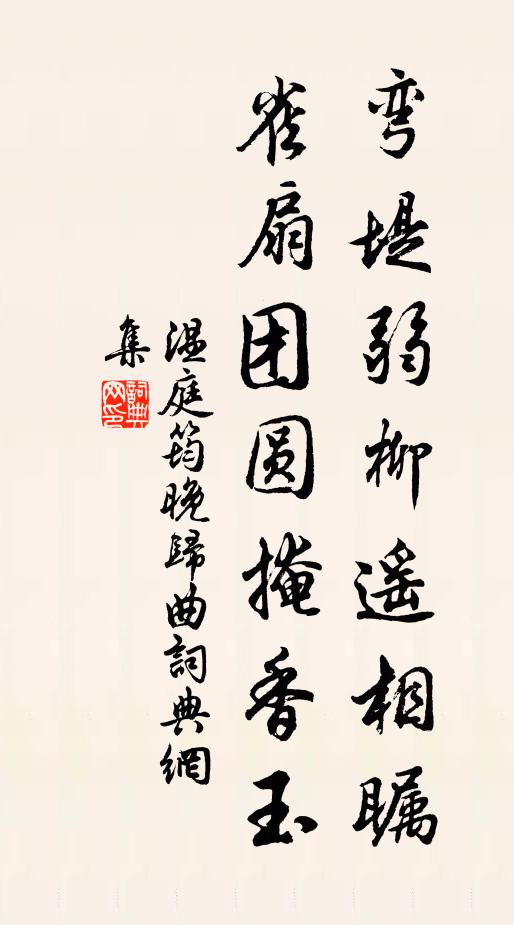 弯堤弱柳遥相瞩
雀扇团圆掩香玉
温庭筠晚歸曲詞典網
集
詞典
网印